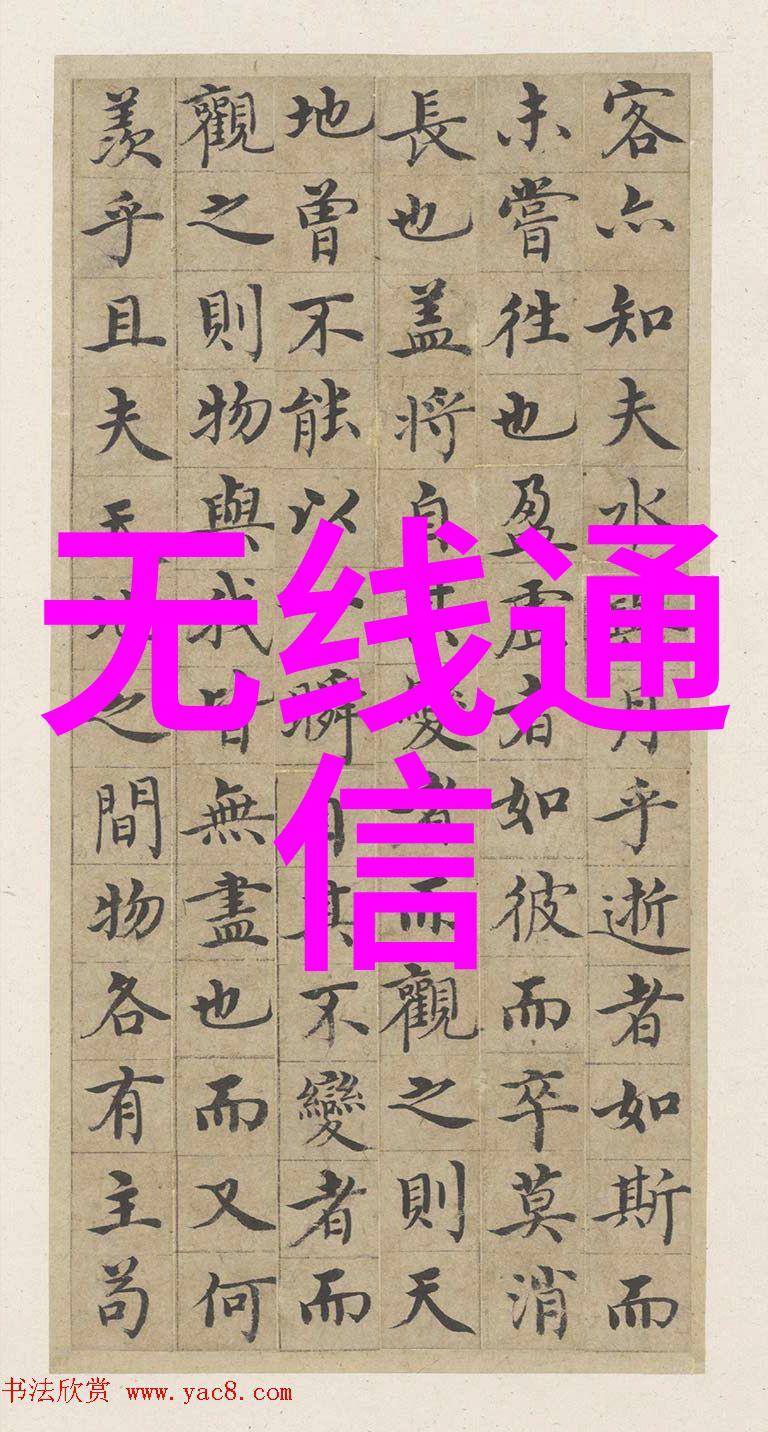 客亦知夫水與月乎逝者如斯而
未嘗往也盈虛者如彼而卒莫消
長也盖将自其變者而觀之則天
地曾不能以瞬自其不變者而
觀之則物與我皆無盡也而又何
羨乎且夫天地之間物各有主苟
无线通
信
书法欣赏 www.yac8.com